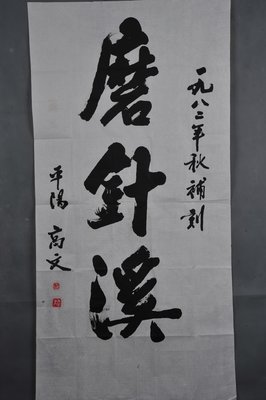 一九八二年秋補刻
磨針溪
平陽
高文